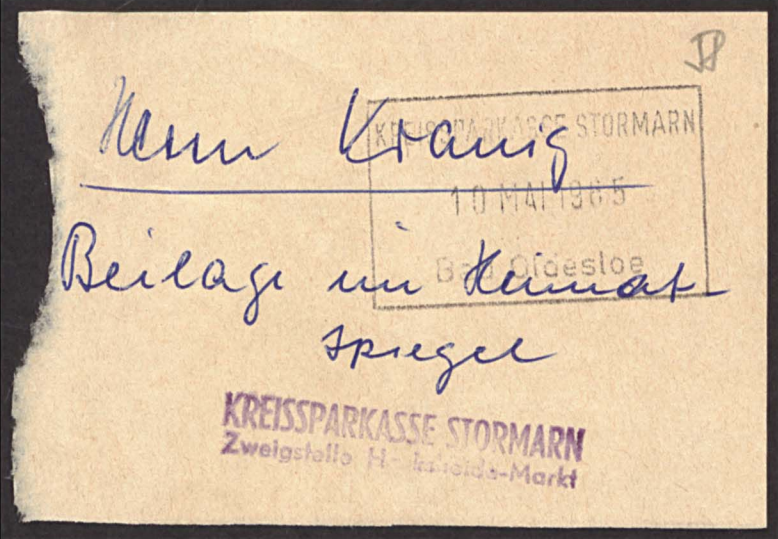 Herrn Kranig
KREISSPARKASSE STORMARN
10 MAI 1965
Bad Oldesloe
Beilage im Heimat-
spiegel
KREISSPARKASSE STORMARN
Zweigstelle -Markt